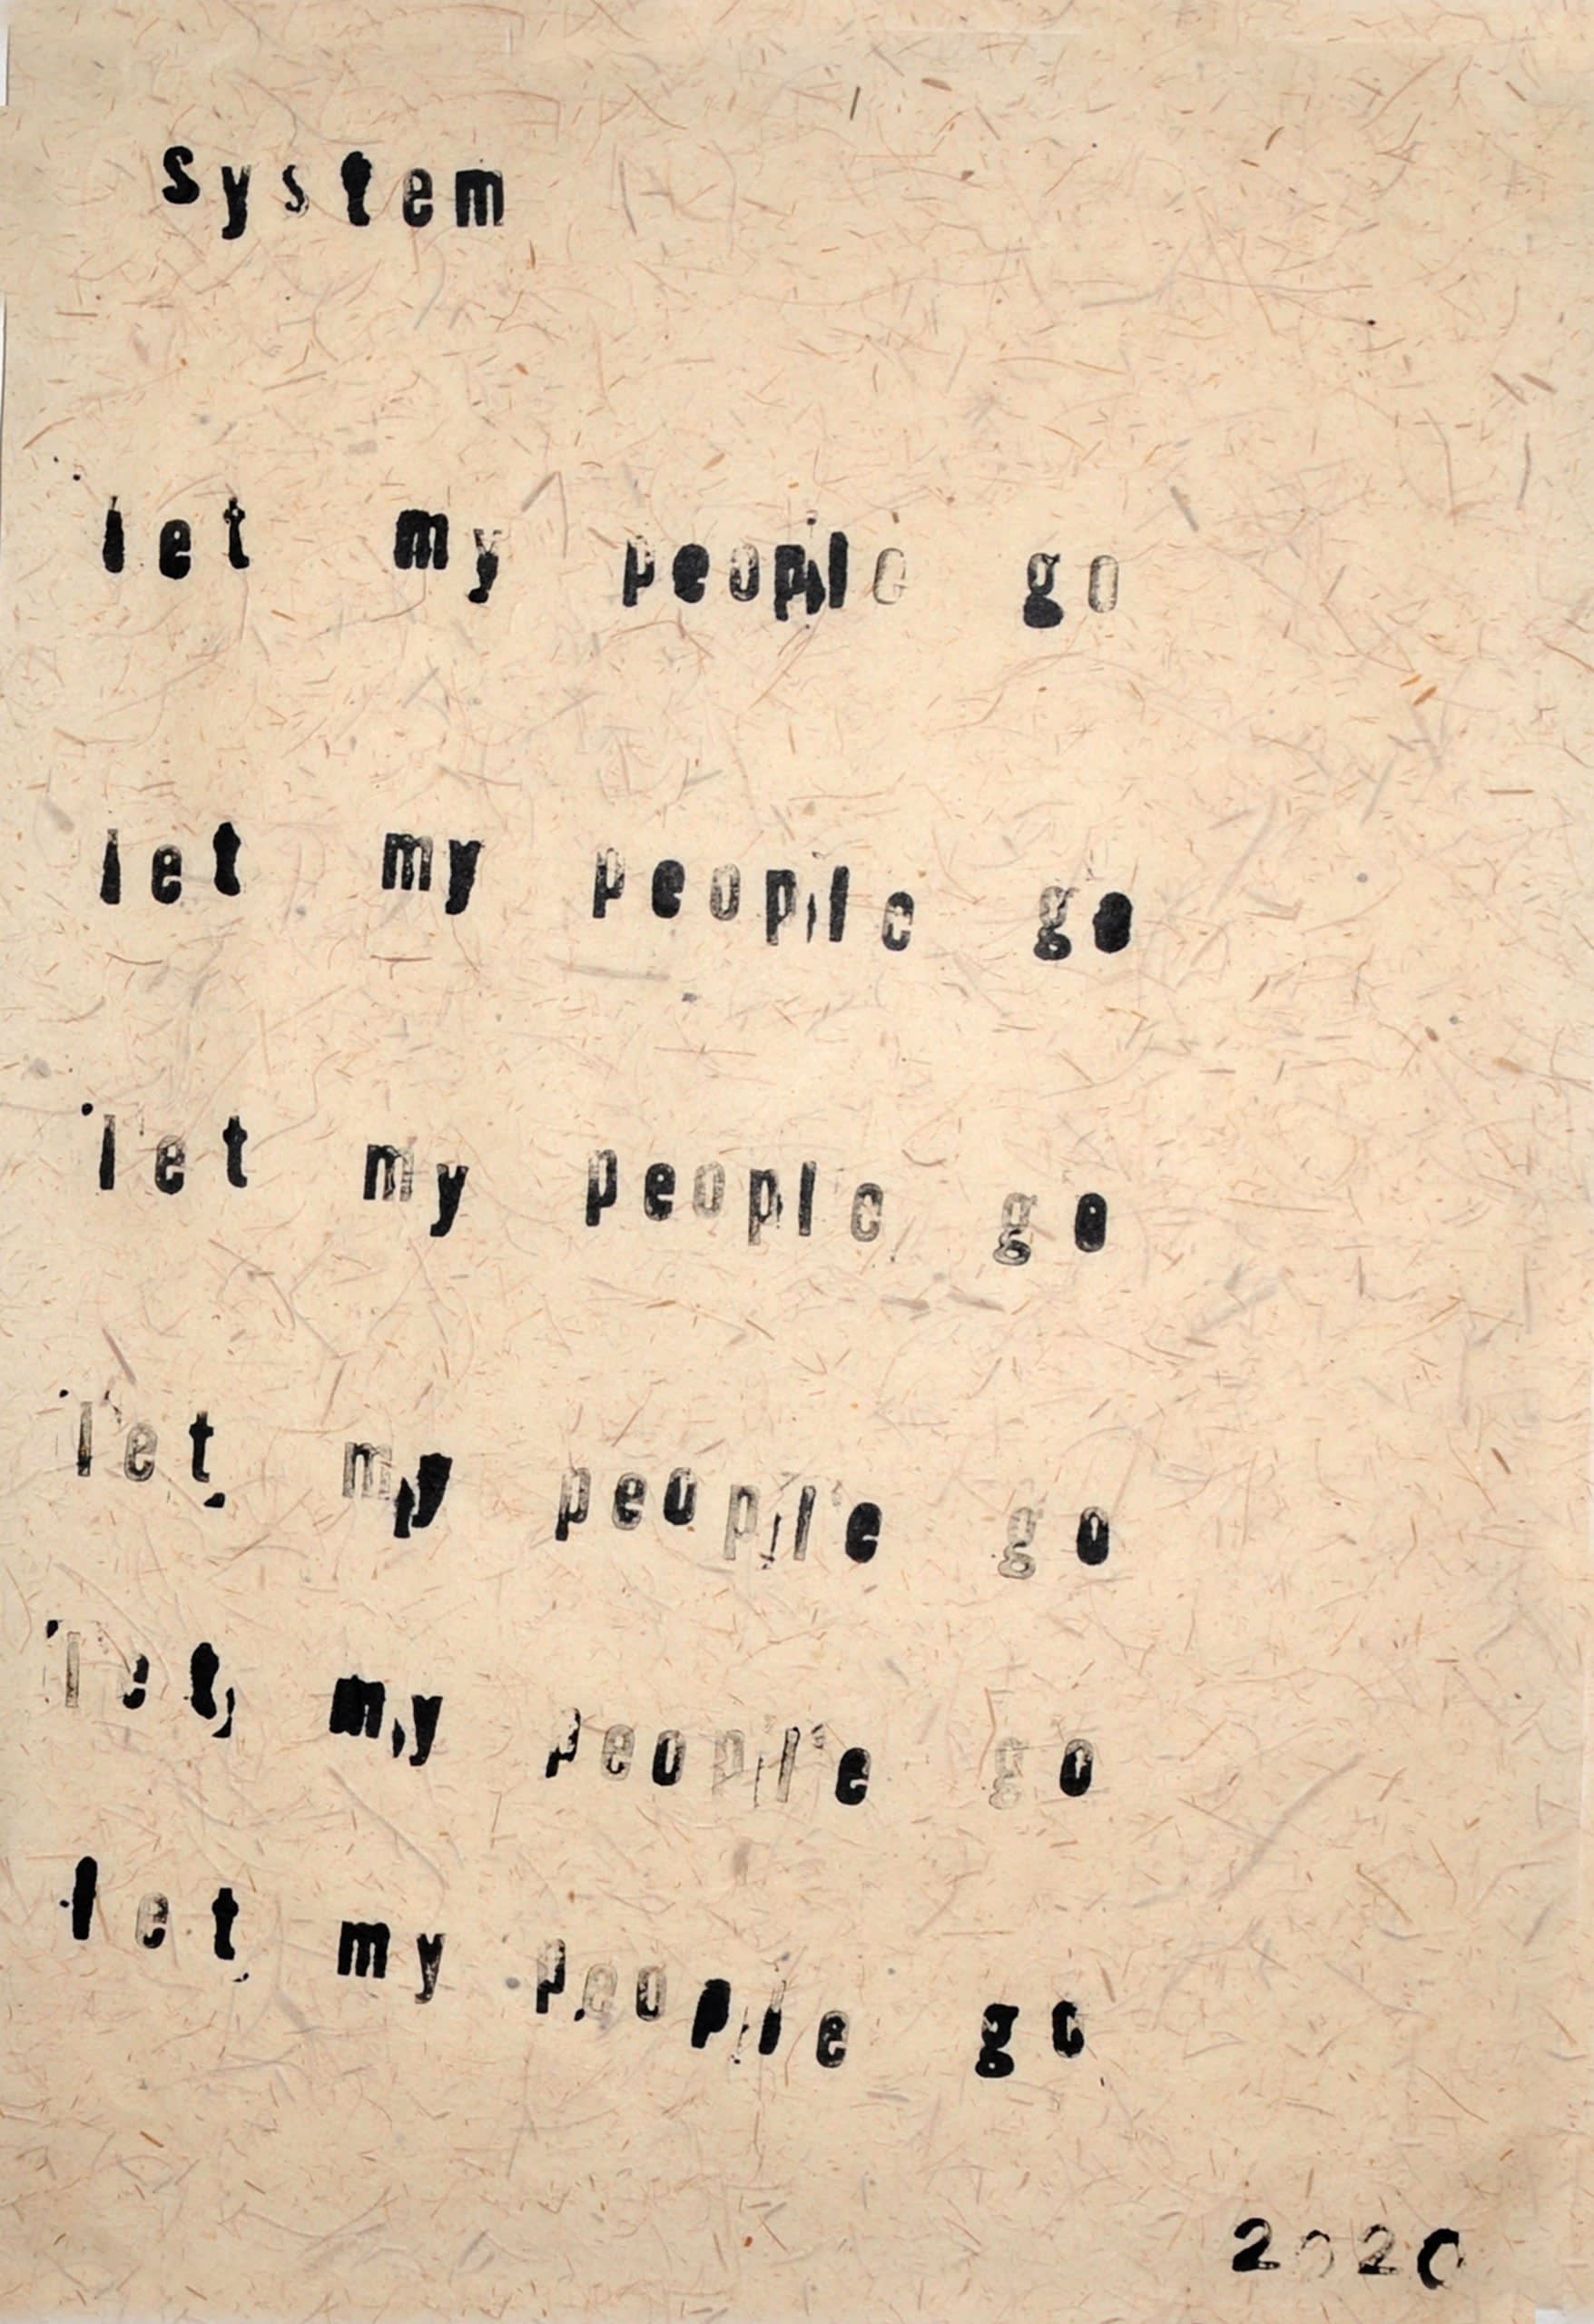 system
let my people go
let my people go
let my people go
let my people go
let my people go
let my people go
2020